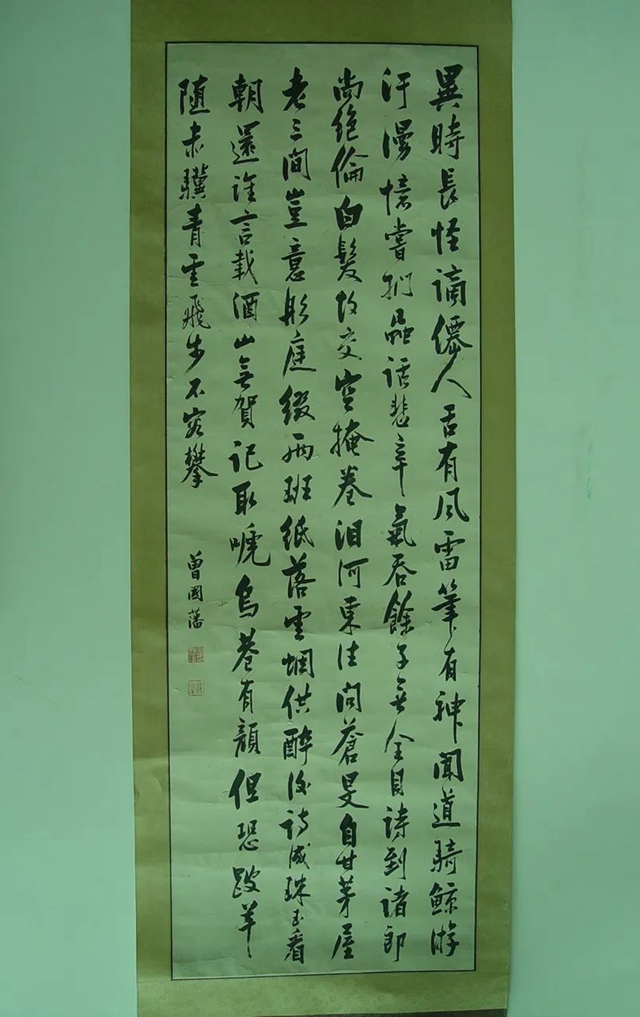 異時長怪謫僊人舌有風雷筆有神聞道騎鯨游
汗漫憶嘗捫蝨話悲辛氣吞餘子無全目詩到諸郎
尚絶倫白髮故交空掩卷泪河東注問蒼旻自甘茅屋
老三間豈意彤庭綴兩班紙落雲烟供醉後詩成珠玉看
朝還誰言載酒山無賀記取嗁烏巷有顔但恐跛羊
隨赤驥青雲飛步不容攀
曾國藩